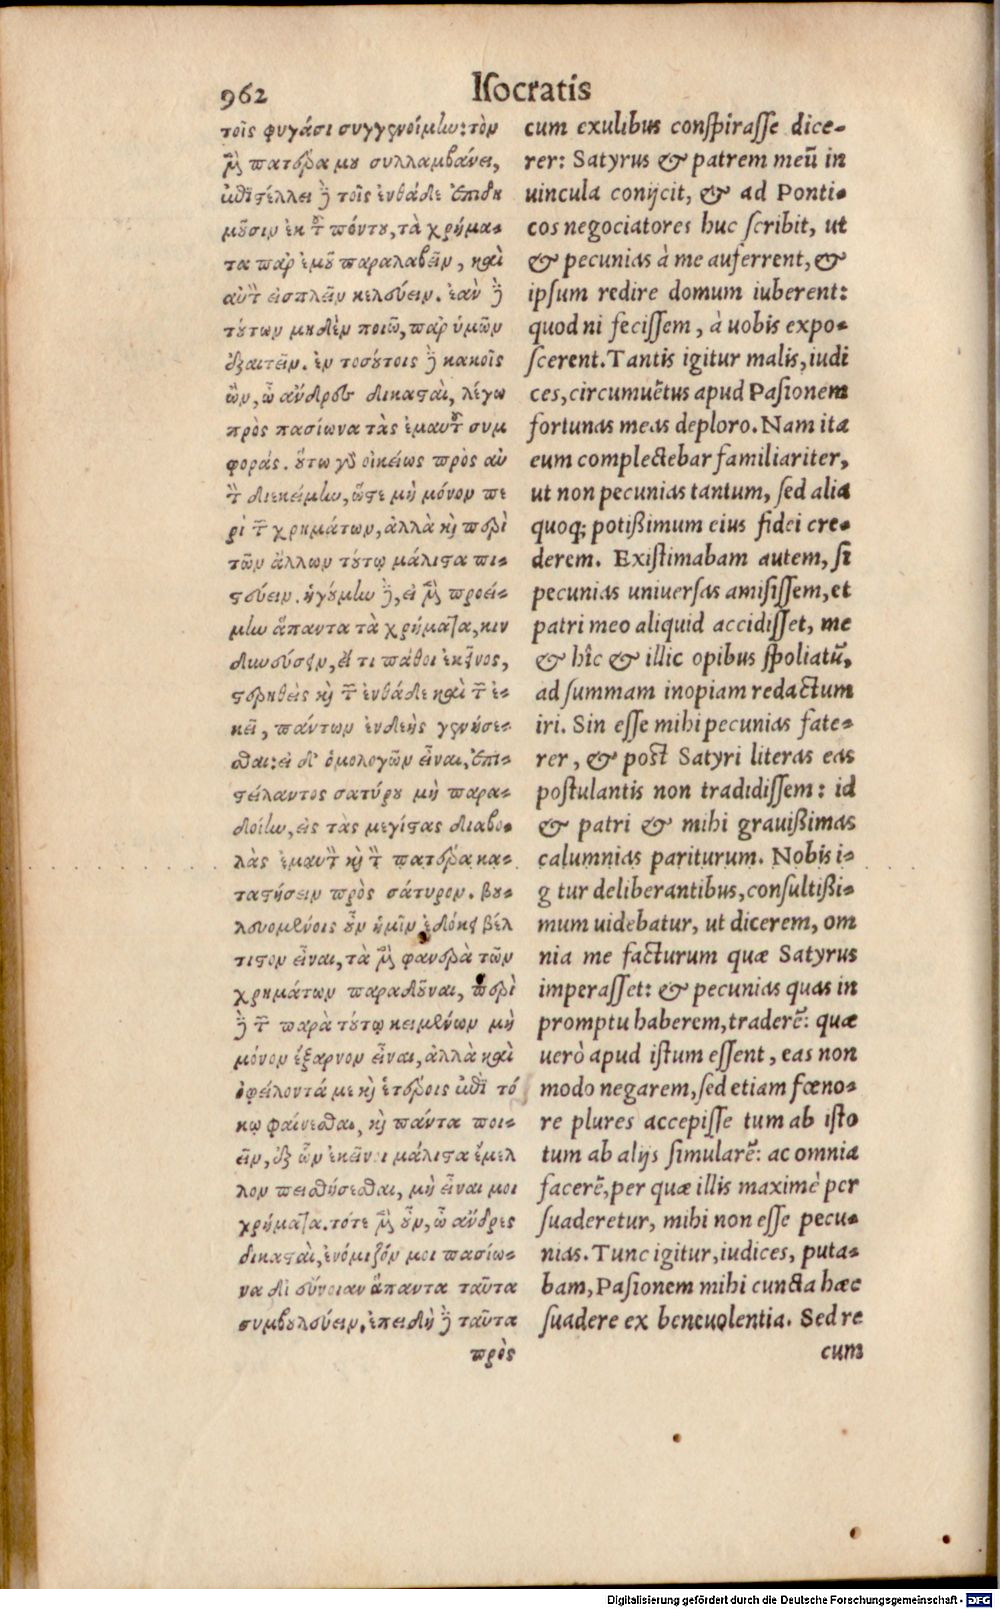 962
Isocratis
τοῖς φυγάσι συγγενοίμην: τὸν
μὲν πατέρα μου συλλαμβάνει,
ἐπιστέλλει δὲ τοῖς ἐνθάδε ἐπιδη
μοῦσιν ἐκ τοῦ πόντου, τὰ χρήμα-
τα παρ' ἐμοῦ παραλαβεῖν, καὶ
αὐτὸν εἰσπλεῖν κελεύειν. ἐὰν δὲ
τούτων μηδὲν ποιῶ, παρ' ὑμῶν
ἐξαιτεῖν. ἐν τοσούτοις δὲ κακοῖς
ὢν, ὦ ἄνδρες δικασταὶ, λέγω
πρὸς πασίωνα τὰς ἐμαυτοῦ συμ
φοράς. οὕτω γὰρ οἰκείως πρὸς αὐ
τὸν διεκείμην, ὥστε μὴ μόνον πε
ρὶ τῶν χρημάτων, ἀλλὰ καὶ περὶ
τῶν ἄλλων τούτῳ μάλιστα πι-
στεύειν. ἡγούμην δὲ, εἰ μὲν προεί-
μην ἅπαντα τὰ χρήματα, κιν
δυνεύσειν, εἴ τι πάθοι ἐκεῖνος,
στερηθεὶς καὶ τῶν ἐνθάδε καὶ τῶν ἐ-
κεῖ, πάντων ἐνδεὴς γενήσε-
σθαι: εἰ δ' ὁμολογῶν εἶναι, ἐπι-
στείλαντος σατύρου μὴ παρα-
δοίην, εἰς τὰς μεγίστας διαβο-
λὰς ἐμαυτὸν καὶ τὸν πατέρα κα-
ταστήσειν πρὸς σάτυρον. βου-
λευομένοις οὖν ἡμῖν ἐδόκει βέλ
τιστον εἶναι, τὰ μὲν φανερὰ τῶν
χρημάτων παραδοῦναι, περὶ
δὲ τῶν παρὰ τούτῳ κειμένων μὴ
μόνον ἔξαρνον εἶναι, ἀλλὰ καὶ
ὀφείλοντά με καὶ ἑτέροις ἐπὶ τό
κῳ φαίνεσθαι, καὶ πάντα ποι-
εῖν, ἐξ ὧν ἐκεῖνοι μάλιστα ἔμελ
λον πεισθήσεσθαι, μὴ εἶναι μοι
χρήματα. τότε μὲν οὖν, ὦ ἄνδρες
δικασταὶ, ἐνόμιζόν μοι πασίω-
να δι' εὔνοιαν ἅπαντα ταῦτα
συμβουλεύειν, ἐπειδὴ δὲ ταῦτα
πρὸς
cum exulibus conspirasse dice-
rer: Satyrus & patrem meū in
uincula conijcit, & ad Ponti-
cos negociatores huc scribit, ut
& pecunias à me auferrent, &
ipsum redire domum iuberent:
quod ni fecissem, à uobis expo-
scerent. Tantis igitur malis, iudi
ces, circumuētus apud Pasionem
fortunas meas deploro. Nam ita
eum complectebar familiariter,
ut non pecunias tantum, sed alia
quoq; potißimum eius fidei cre-
derem. Existimabam autem, si
pecunias uniuersas amisissem, et
patri meo aliquid accidisset, me
& hîc & illic opibus spoliatū,
ad summam inopiam redactum
iri. Sin esse mihi pecunias fate-
rer, & post Satyri literas eas
postulantis non tradidissem: id
& patri & mihi grauißimas
calumnias pariturum. Nobis i-
g tur deliberantibus, consultißi-
mum uidebatur, ut dicerem, om
nia me facturum quæ Satyrus
imperasset: & pecunias quas in
promptu haberem, traderē: quæ
uerò apud istum essent, eas non
modo negarem, sed etiam fœno-
re plures accepisse tum ab isto
tum ab alijs simularē: ac omnia
facerē, per quæ illis maximè per
suaderetur, mihi non esse pecu-
nias. Tunc igitur, iudices, puta-
bam, Pasionem mihi cuncta hæc
suadere ex beneuolentia. Sed re
cum
Digitalisierung gefördert durch die Deutsche Forschungsgemeinschaft - DFG